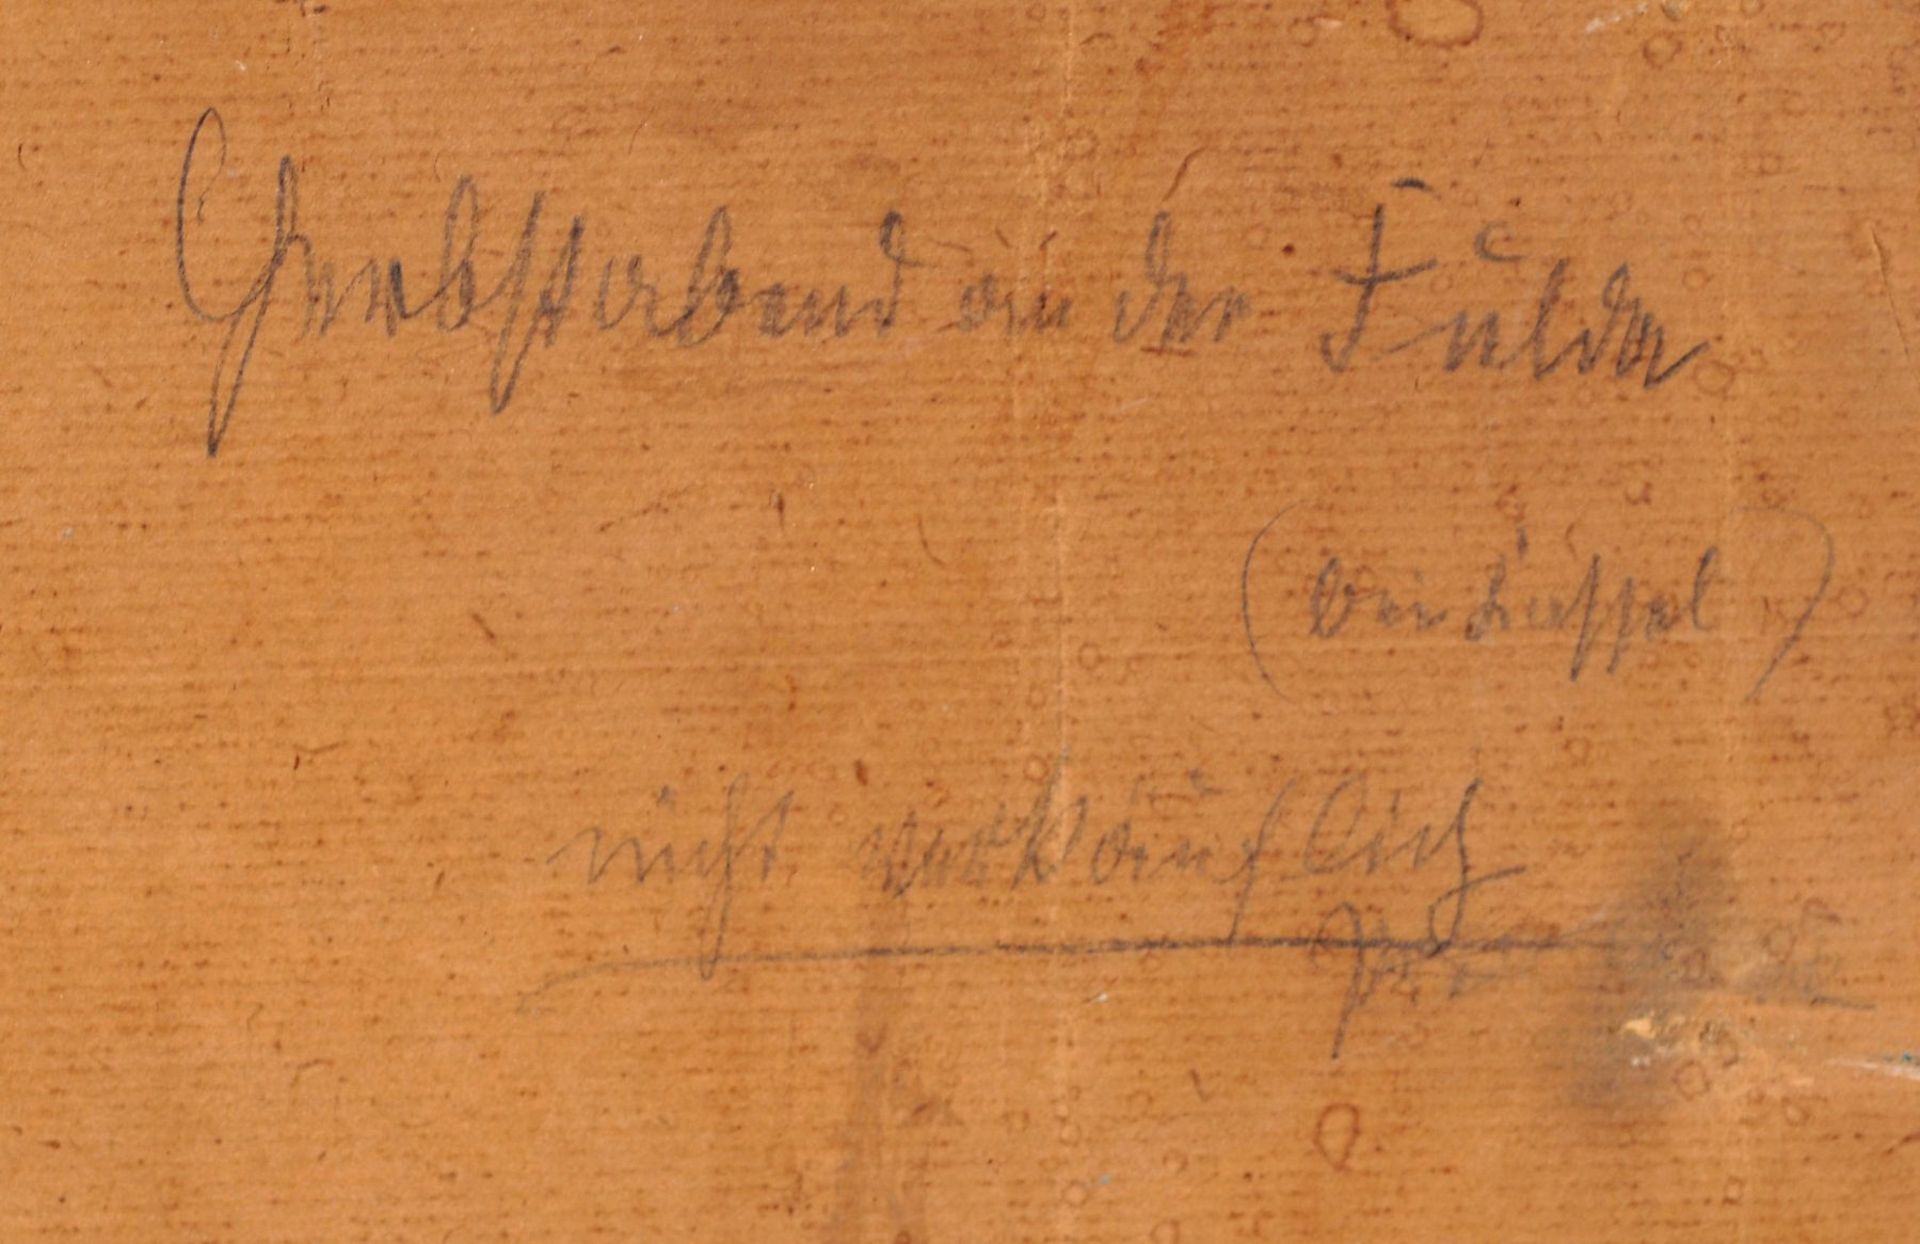 Herbstabend an der Fulda
(bei Kassel)
nicht verkäuflich